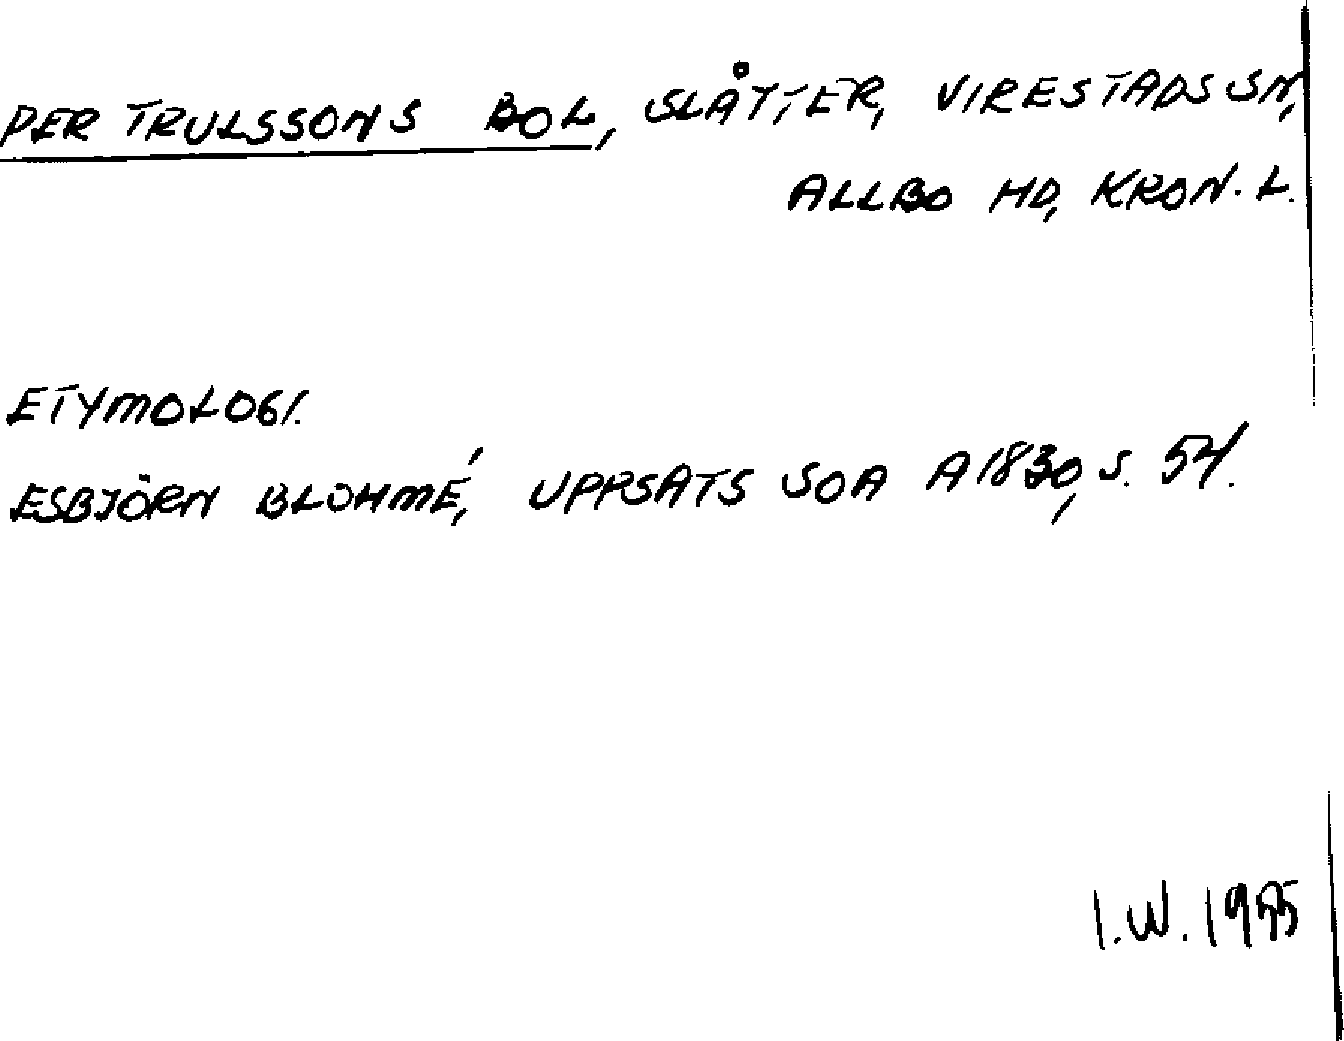 PER TRULSSONS BOL, SLÅTTER, VIRESTADS SN,
ALLBO HD, KRON. L.
ETYMOLOGI.
ESBJÖRN BLOHMÉ, UPPSATS SOA A1830, S. 54.
I.W. 1955